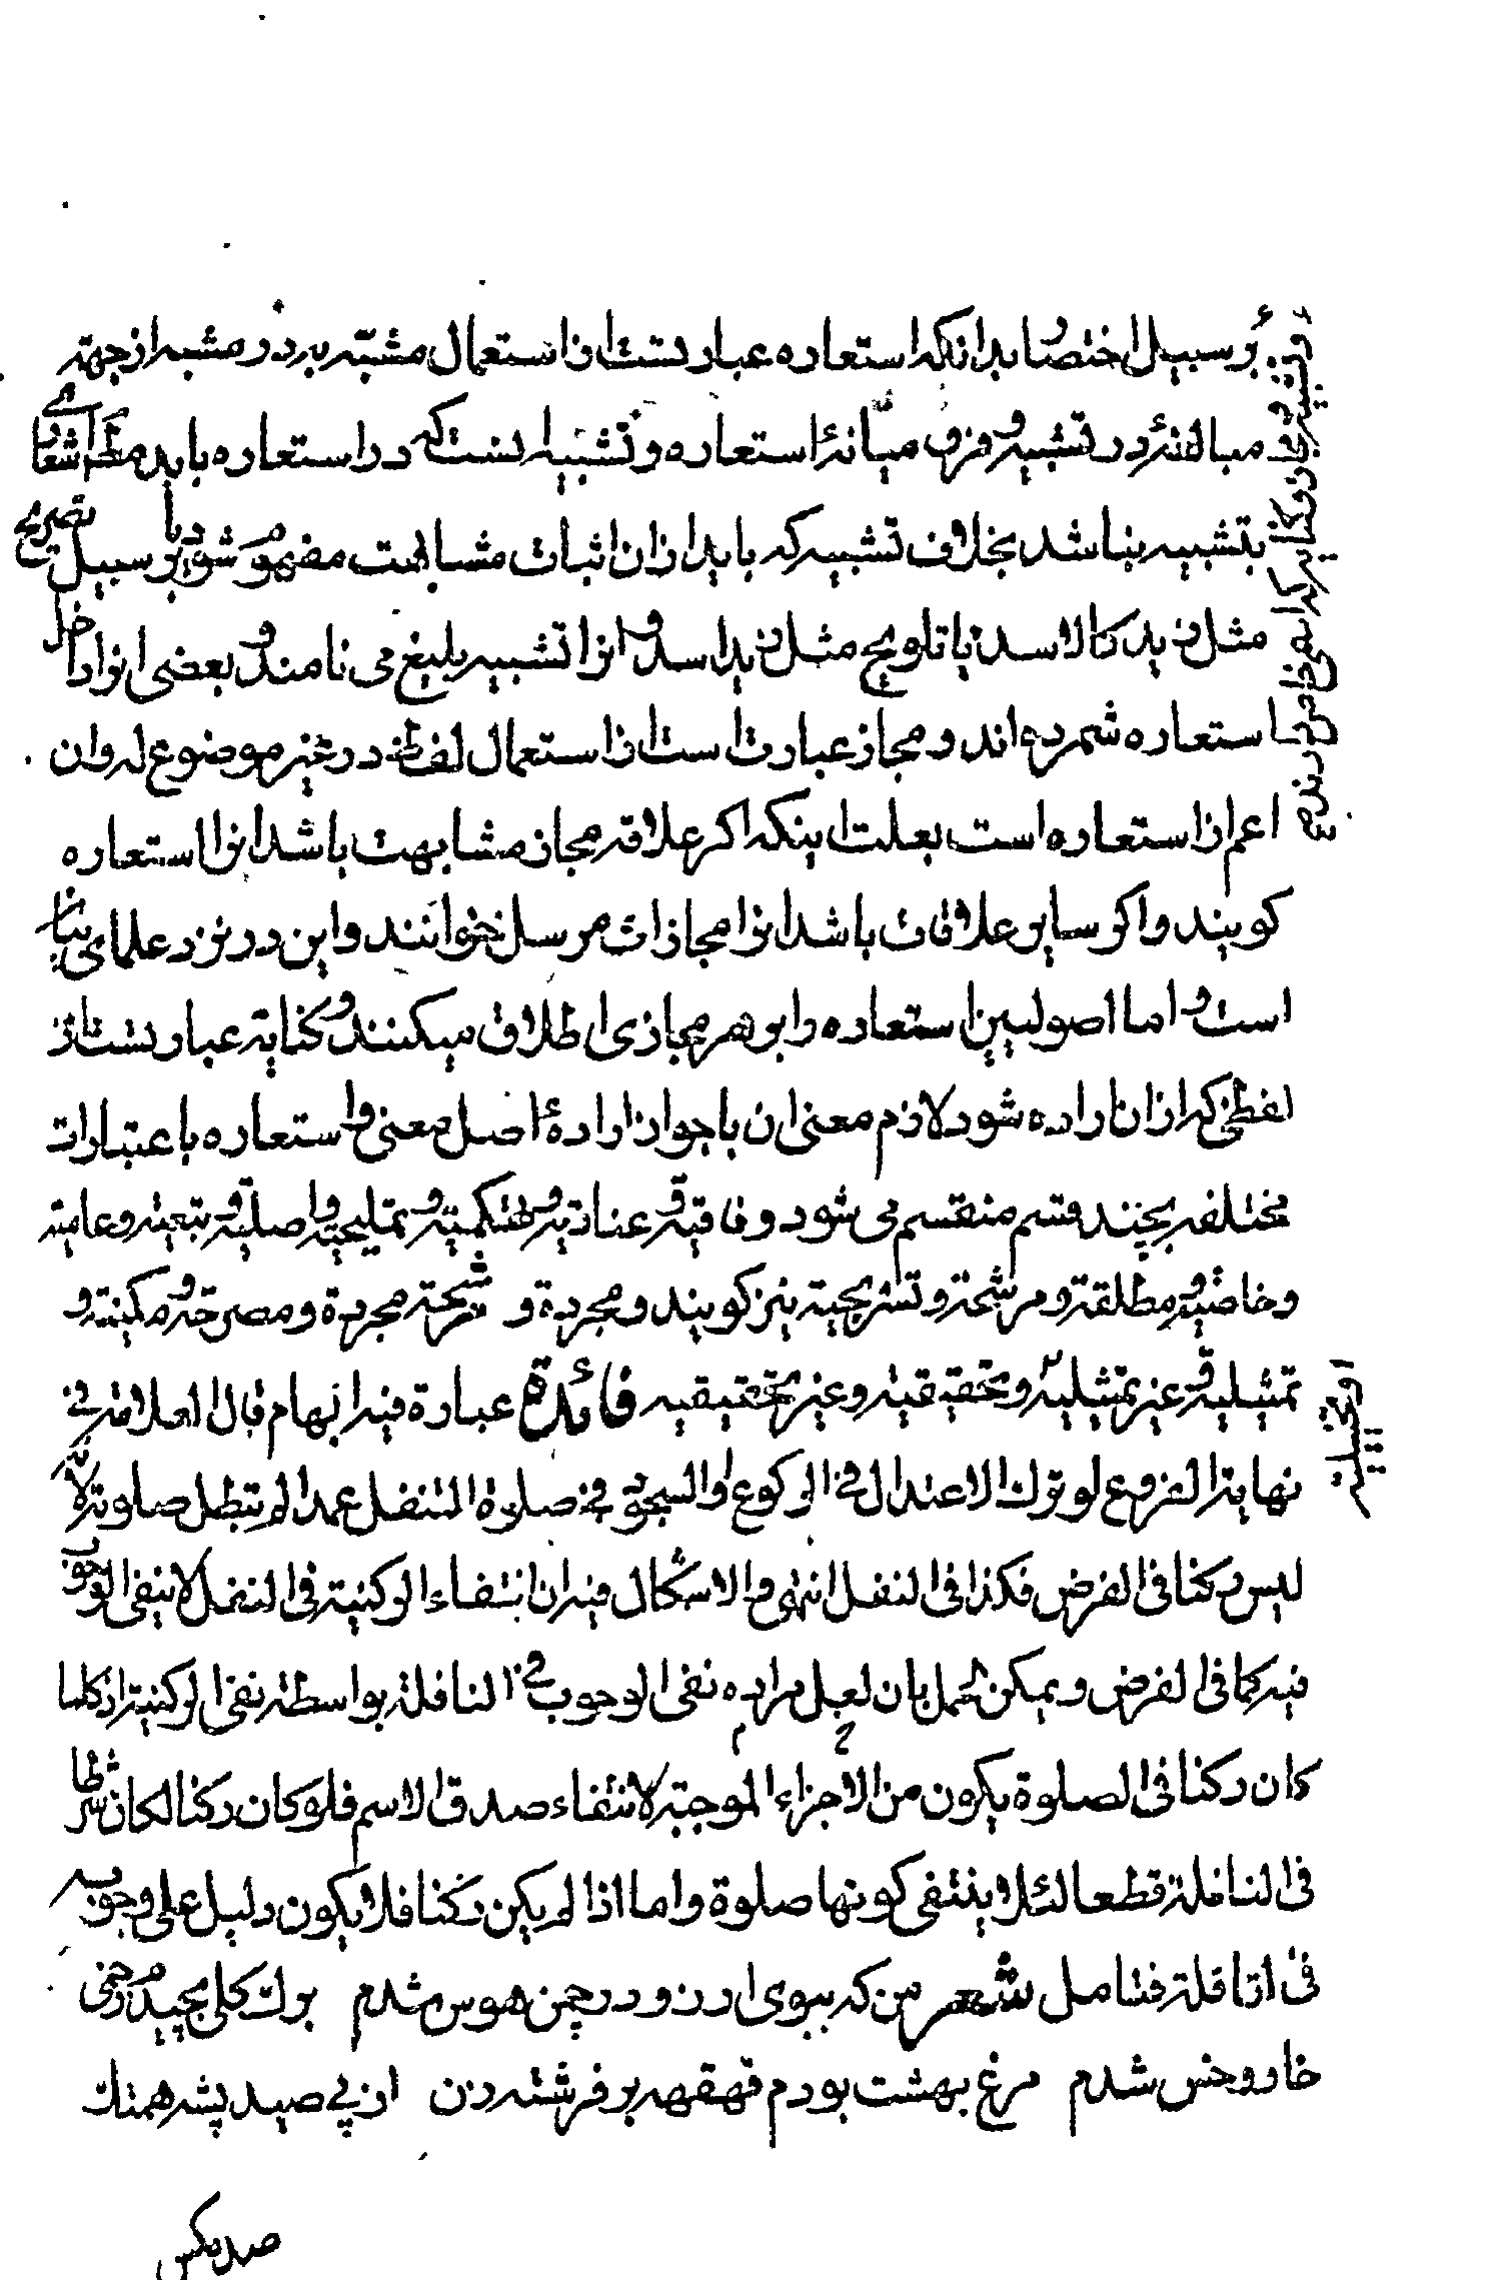 بر سبیل اختصار بدانکه استعاره عبارتست از استعمال مشبّه به در مشبه از جهة
مبالغهٔ در تشبیه و فرق میانهٔ استعاره و تشبیه اینست که در استعاره باید اشعار
بتشبیه نباشد بخلاف تشبیه که باید از ان اثبات مشابهت مفهوم شود یا بر سبیل تصریح
مثل زید کالاسد یا تلویح مثل زید اسد و انرا تشبیه بلیغ می نامند و بعضی انرا داخل
استعاره شمرده اند و مجاز عبارت است از استعمال لفظ در غیر موضوع له و ان
اعم از استعاره است بعلت اینکه اکر علاقه مجاز مشابهت باشد انرا استعاره
کویند و اکر سایر علاقات باشد انرا مجازات مرسل خوانند و این در نزد علمای بیان
است و اما اصولیین استعاره را بر هر مجازی اطلاق میکنند و کنایة عبارتست از
لفظی که از ان اراده شود لازم معنی ان با جواز ارادهٔ اصل معنی و استعاره باعتبارات
مختلفه بچند قسم منقسم می شود وفاقیة و عنادیة و تهکمیة و تملیحیة و اصلیة و تبعیة و عامیة
و خاصیة و مطلقة و مرشحة و ترشیحیة نیز کویند و مجردة و مرشحة مجردة و مصرحة و مکنیة و
تمثیلیة و غیر تمثیلیة و تحقیقیة و غیر تحقیقیه فائدة عبارة فیه ابهام قال العلامة فی
نهایة الفروع لو ترك الاعتدال فی الرکوع او السجود فی صلوة المتنفل عمدا لم تبطل صلوته لانه
لیس رکنا فی الفرض فکذا فی النفل انتهی و الاشکال فیه ان انتفاء الرکنیة فی النفل لا ینفی الوجوب
فیه کما فی الفرض و یمکن حمل بان لعل مراده نفی الوجوب فی النافلة بواسطة نفی الرکنیة اذ کلما
کان رکنا فی الصلوة یکون من الاجزاء الموجبة لانتفاء صدق الاسم فلو کان رکنا لکان شرطا
فی النافلة قطعا لئلا ینتفی کونها صلوة و اما اذا لم یکن رکنا فلا یکون دلیل علی وجوبه
فی النافلة فتامل شعر من که ببوی ارزو در چمن هوس شدم برك کلی نچیدم و زخمی
خار و خس شدم مرغ بهشت بودم قهقهه بر فرشته زن از پی صید پشه همتك
صد مکس